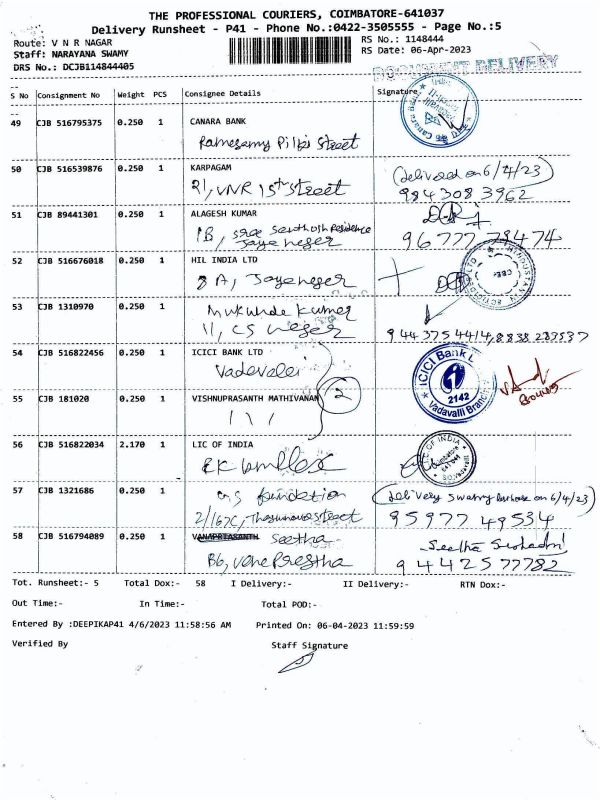 THE PROFESSIONAL COURIERS, COIMBATORE-641037
Delivery Runsheet - P41 - Phone No.:0422-3505555 - Page No.:5
Route: V N R NAGAR
RS No.: 1148444
Staff: NARAYANA SWAMY
RS Date: 06-Apr-2023
DRS No.: DCJB114844405
DOCUMENT DELIVERY
S No Consignment No Weight PCS Consignee Details Signature
49 CJB 516795375 0.250 1 CANARA BANK
Ramesamy Pillai Street
50 CJB 516539876 0.250 1 KARPAGAM (delivered on 6/4/23)
21, VNR 1st Street 9843083962
51 CJB 89441301 0.250 1 ALAGESH KUMAR
1B, sree Santhosh Residence
Jaya neger
52 CJB 516676018 0.250 1 HIL INDIA LTD
8 A, Jayeneger
53 CJB 1310970 0.250 1 Mukunde Kumar
11, CS neger
54 CJB 516822456 0.250 1 ICICI BANK LTD
Vadavalei
ICICI Bank L
2142
Vadavalli Branch
55 CJB 181020 0.250 1 VISHNUPRASANTH MATHIVANAN 2
56 CJB 516822034 2.170 1 LIC OF INDIA
LIC OF INDIA
RK Complex
57 CJB 1321686 0.250 1 foundation
2/167C, street 95977 49534
58 CJB 516794089 0.250 1 VANAPRIASANTH Seetha
B6, vane Prestha 9442577782
Tot. Runsheet:- 5 Total Dox:- 58 I Delivery:- II Delivery:- RTN Dox:-
Out Time:- In Time:- Total POD:-
Entered By :DEEPIKAP41 4/6/2023 11:58:56 AM Printed On: 06-04-2023 11:59:59
Verified By Staff Signature